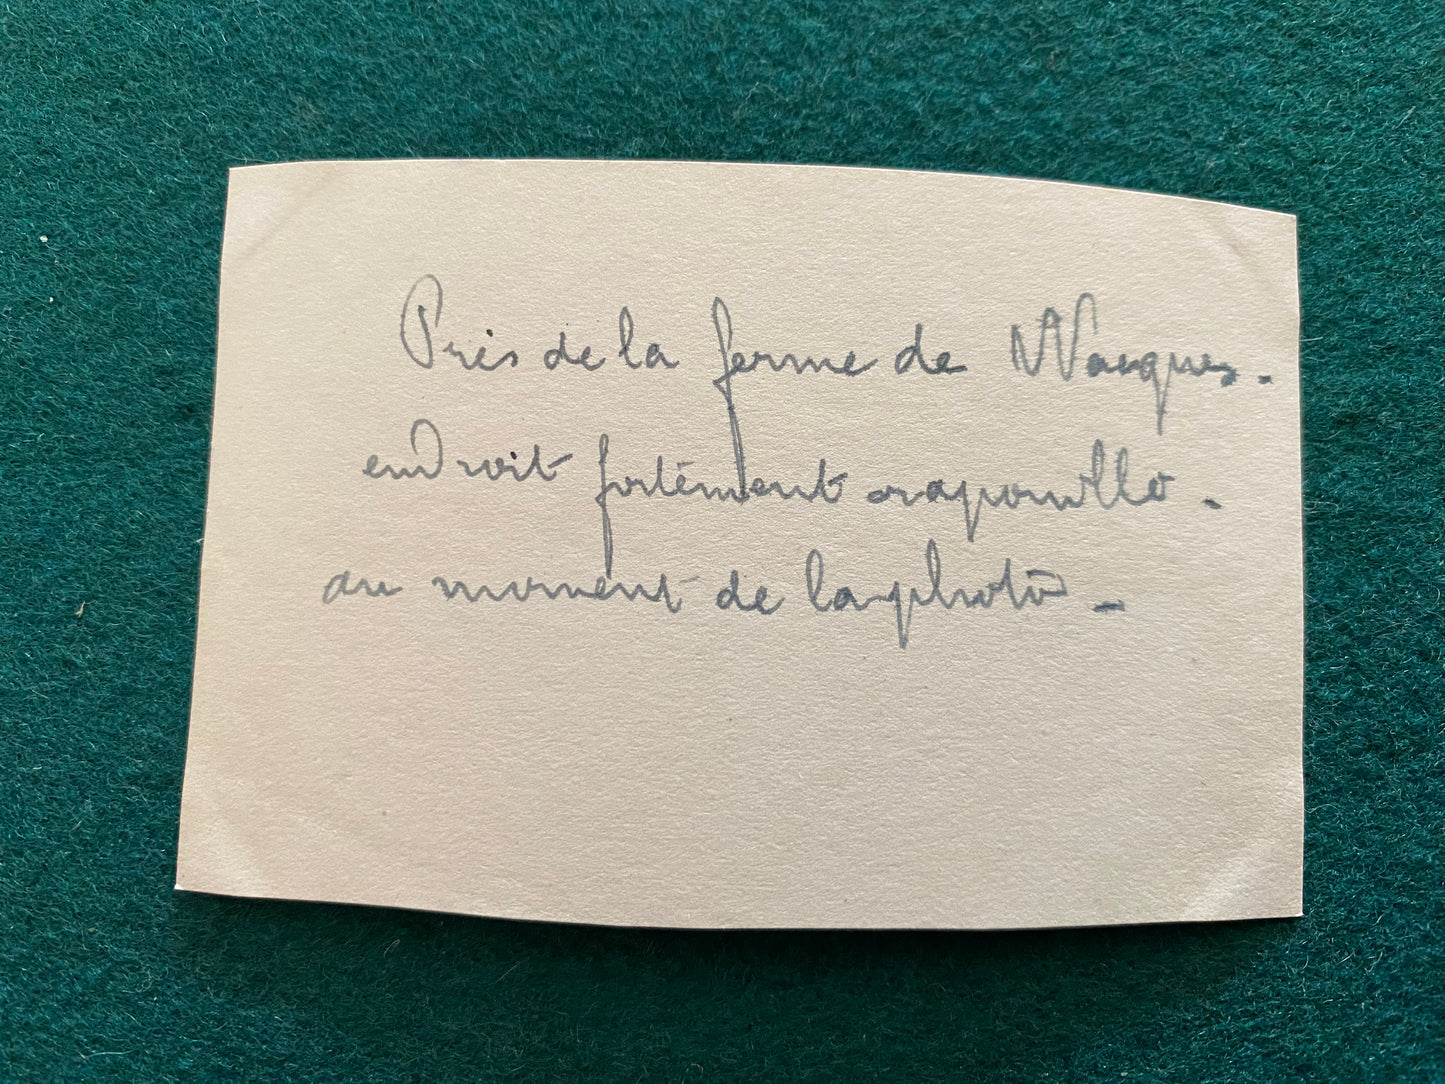 Près de la ferme de Wacques.
endroit fortement crapouillé.
au moment de la photo -